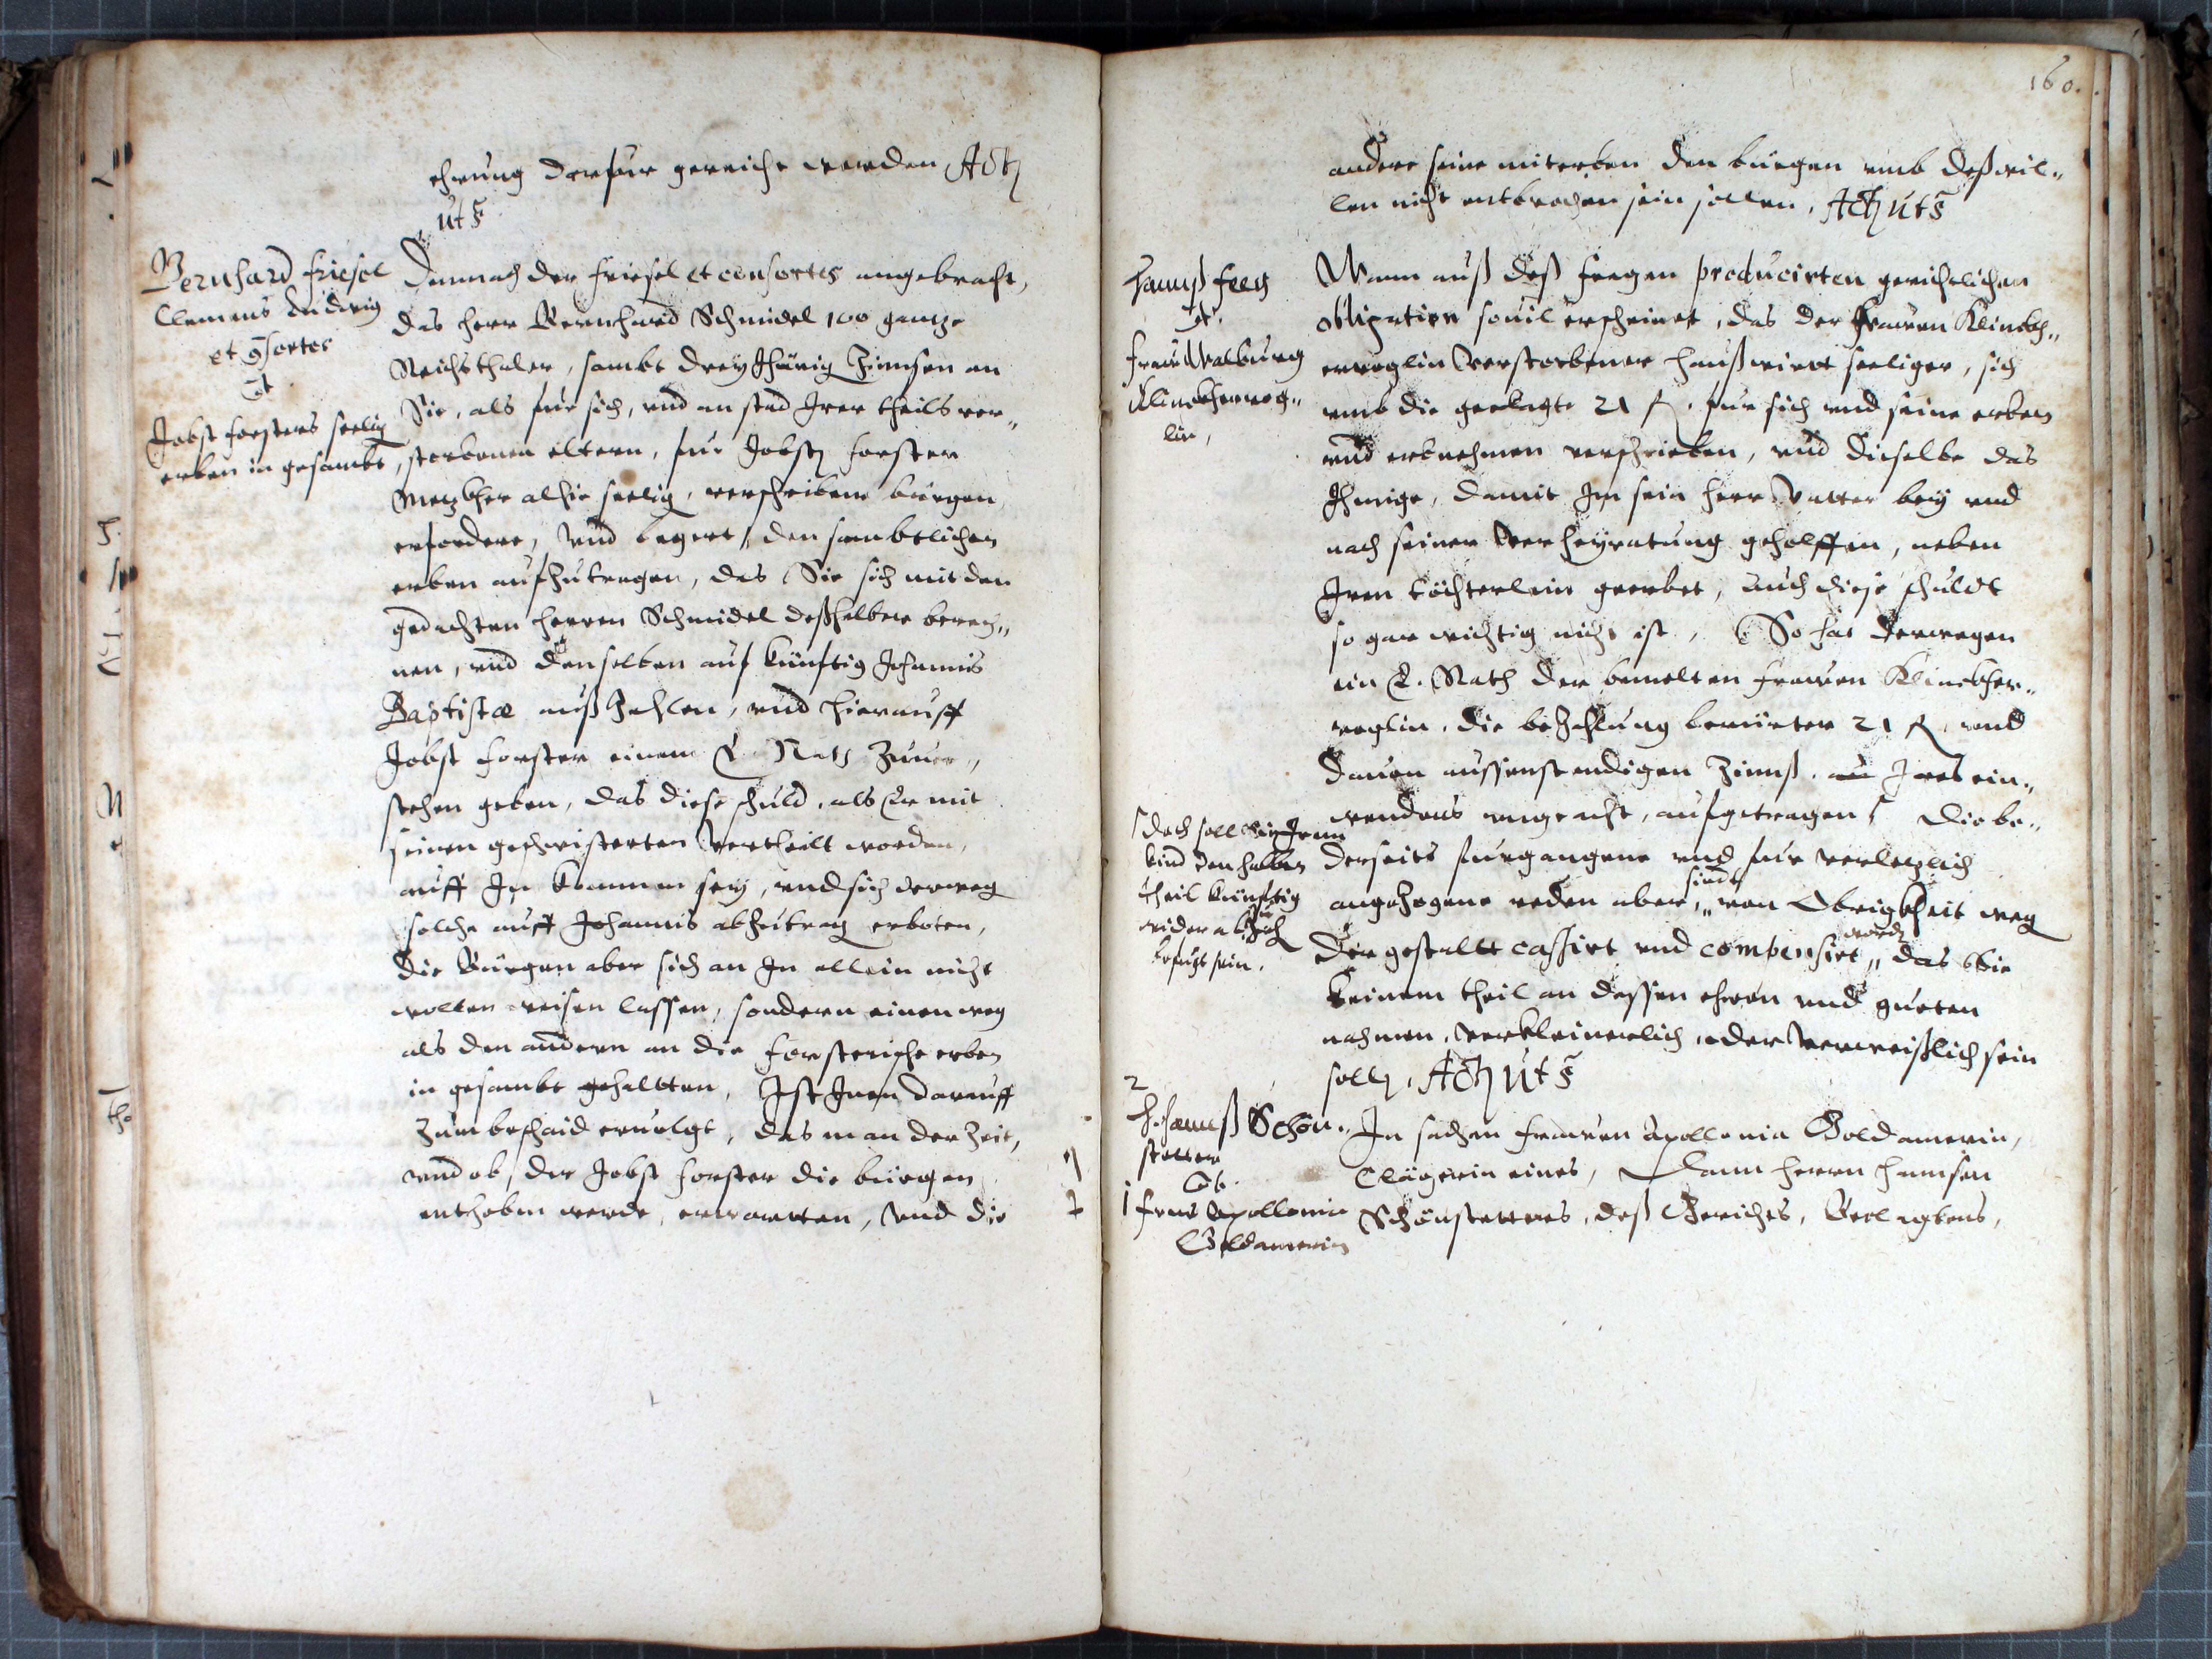 ehrung darfur gereicht werden Actum
ut S
Bernhard Friesel
Clemens Ludwig
et Consortes
Ct
Jobst Forsters seelig
erben in gesambt,
Demnach der Friesel et consortes angebracht,
das herr Bernhard Schmidel 100 gantze
Reichsthaler, sambt dreyJhärig Zinnsen an
Sie, als für sich, und an stad Irer theils ver„
storbenen eltern, fur Jobsts Forster
Metzkher alhie seelig, verschribene bürgen
erfordere, und begert, den sambtlichen
erben aufzutragen, das Sie sich mit den
gedachten herren Schmidel deßhalben berech„
nen, und denselben auf künftig Johannis
Baptistæ außzahlen, und hierauff
Jobst Forster einem E. Rath zuuer„
stehen geben, das diese schuld, als Er mit
seinen geschwisterten vertheilt worden,
auff In kommen sey, und sich derweg
solche auff Johannis abzutrag erboten,
die Bürgen aber sich an In allein nicht
wollen weisen lassen, sondern einen weg
als den andern an die Forsterische erben
in gesambt gehaltten, Ist Inen darauff
zum beschaid eruolgt, das man der Zeit,
und ob, der Jobst Forster die bürgen
enthebm werde, erwartten, und die
160.
andere seine miterben den bürgen umb deßwil„
len nicht entbrochen sein sollen, Actum ut S
Hannß Feeg
Ct.
Frau Walburg
Klinckherweg„
lin,
Wann auß deß Feegen producirten gerichtlichen
obligation souil erscheinet, das der Frawen Klinckh„
erweglin verstorbener haußwirt seeliger, sich
umb die geclagte 21 fl. fur sich und seine erben
und erbnehmen verschrieben, und dieselbe das
Ihenige, damit Im sein herr Vatter bey und
nach seiner verheyratung geholffen, neben
Iren töchterlein geerbet, auch diese schuldt
so gar wichtig nicht ist, So hat derwegen
ein E. Rath der bemelten Frawen Klinckher„
weglin, die bezahlung berürter 21 fl. und
dauon aussenstendigen Zinnß, Ires ein„
wendens ungeacht, aufgetragen, Die be„
doch soll Sie Irem
kind den halben
theil künftig
wider abZuZieh
befugt sein.
derseits furgangene und fur verletzlich
angezogene reden aber, sindt von Obrigkheit weg
der gestallt cassirt und compensirt worden, das Sie
keinem theil an dessen ehren und gueten
nahmen, verkleinerlich, oder verweißlich sein
solln, Actum ut S
2
H. Hannß Schön„
stetter
Ct.
1 Fraw Apollonia
Goldamerin
In sachen Frawen Apollonia Goldamerin,
Clägerin eines, Dann herrn Hannsen
Schönstetters, deß Gerichts, Beclagtens,